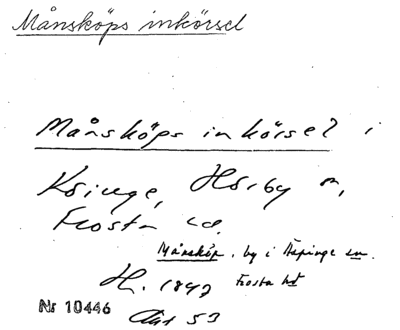 Månsköps inkörsel
Månsköps inkörsel i
Kringe, Hörby sn,
Frosta hd.
Månsköp, by i Äspinge sn.
Frosta hd
H. 1847
Nr 10446
53